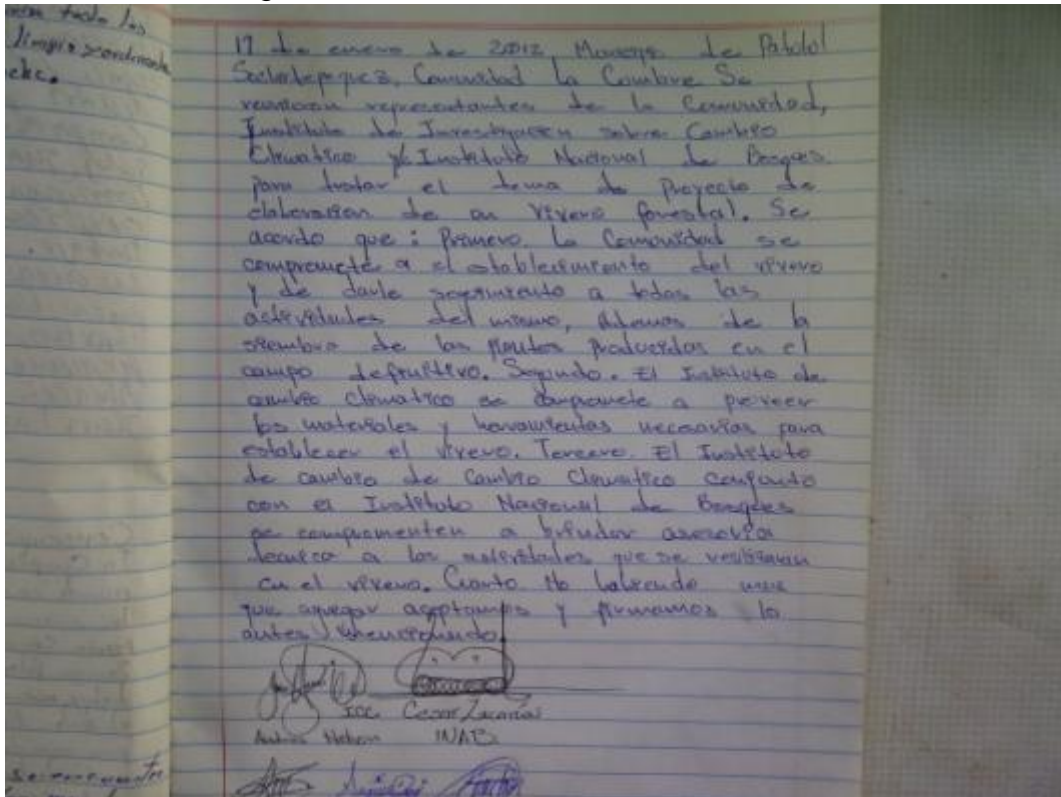 todo las
limpio y ordenado
etc.
17 de enero de 2012, de Patulul
Suchitepequez, Comunidad La Cumbre Se
reunieron representantes de la Comunidad,
Instituto de Investigación sobre Cambio
Climatico y Instituto Nacional de Bosques
para tratar el tema de Proyecto de
elaboracion de un vivero forestal. Se
acordo que: Primero. La Comunidad se
compromete a el establecimiento del vivero
y de darle seguimiento a todas las
actividades del mismo, Además de la
siembra de las plantas producidas en el
campo definitivo. Segundo. El Instituto de
cambio climatico se compromete a proveer
los materiales y herramientas necesarias para
establecer el vivero. Tercero. El Instituto
de cambio de Cambio Climatico conjunto
con el Instituto Nacional de Bosques
se comprometen a brindar asesoría
tecnica a las actividades que se realizaran
en el vivero. Cuarto No habiendo mas
que agregar aceptamos y firmamos lo
antes mencionando.
ICC Cesar Zacarías
INAB